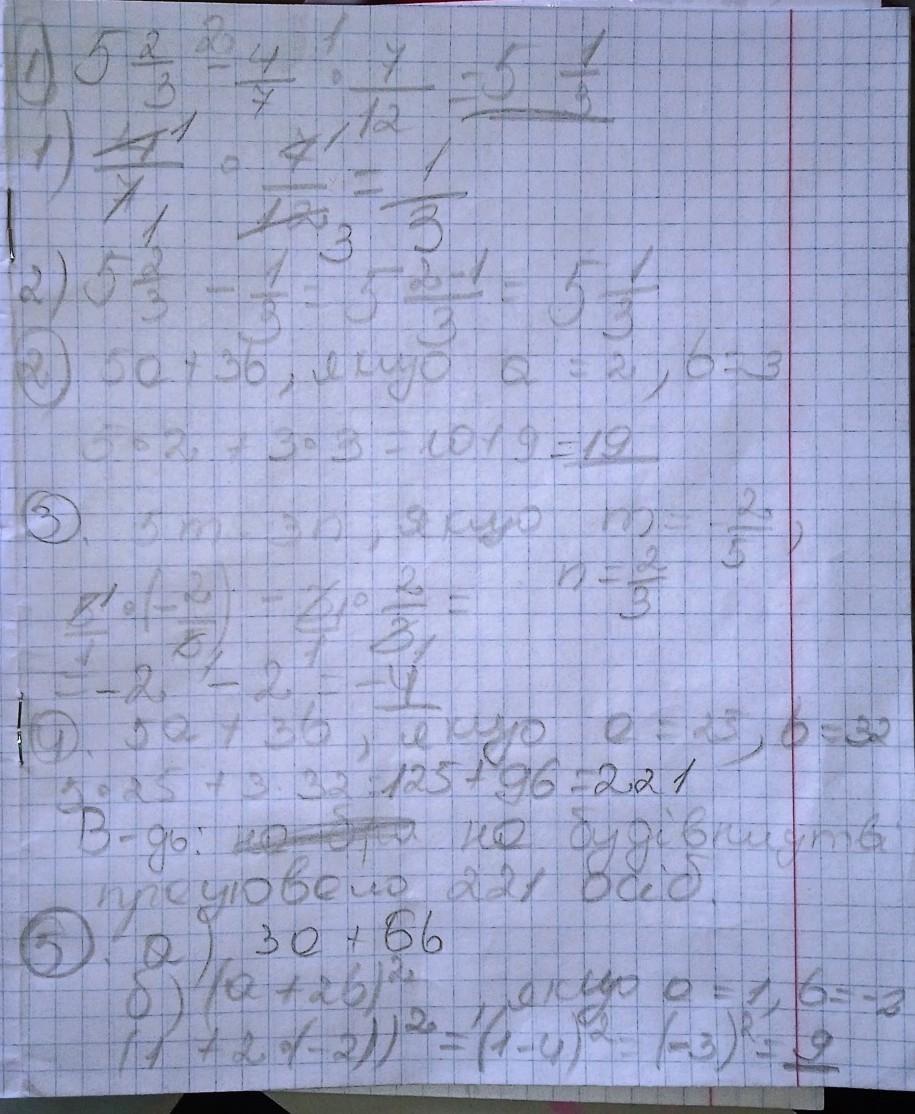 ① 5 2/3 - 4/7 · 7/12 = 5 1/3
1) 4/7 · 7/12 = 1/3
2) 5 2/3 - 1/3 = 5 2-1/3 = 5 1/3
② 5a + 3b, якщо a = 2, b = 3
5·2 + 3·3 = 10 + 9 = 19
③. 5m - 3n, якщо m = - 2/5,
n = 2/3
5/1 · (-2/5) - 3/1 · 2/3 =
= -2 - 2 = -4
④. 5a + 3b, якщо a = 25, b = 32
5·25 + 3·32 = 125 + 96 = 221
В-дь: на будівництві
працювало 221 осіб.
⑤. а) 3a + 6b
б) (a + 2b)², якщо a = 1, b = -2
(1 + 2·(-2))² = (1-4)² = (-3)² = 9